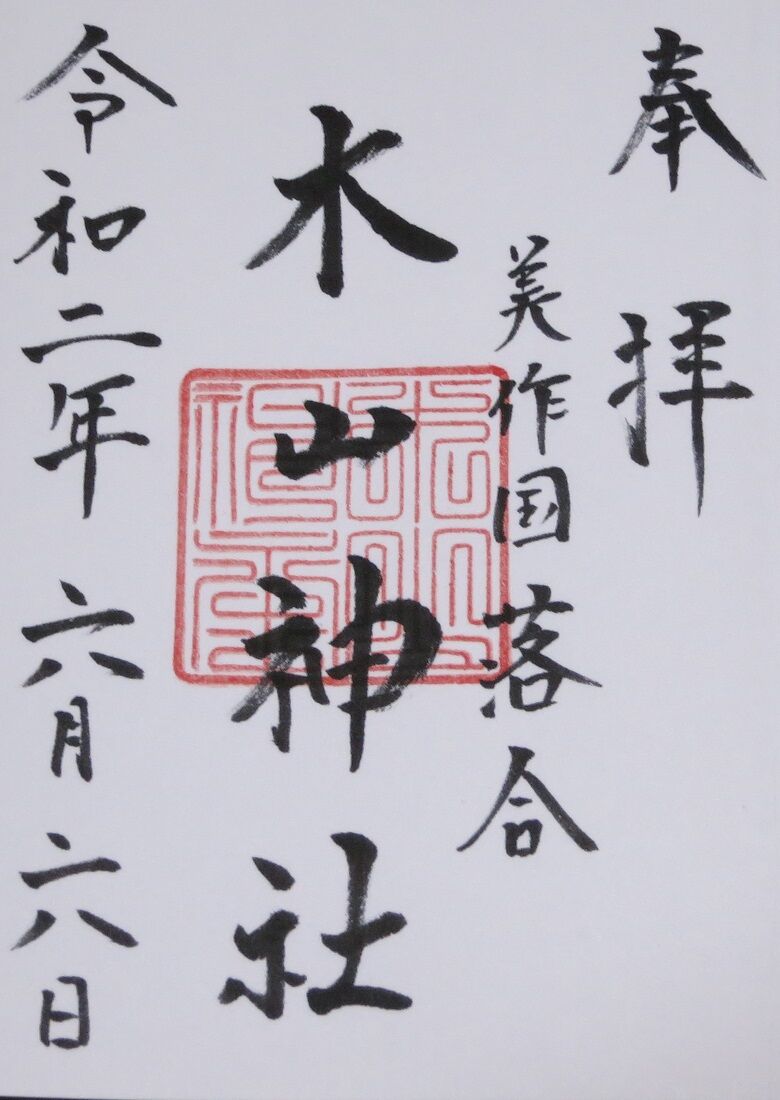 奉拝
美作国落合
木山神社
令和二年六月六日